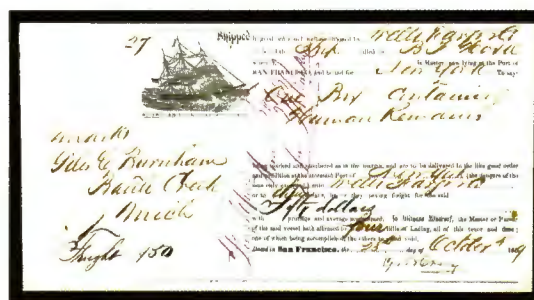 27
Shipped
in good order and
Wells Fargo & Co
Ship called the
whereof is Master, now lying at the Port of
SAN FRANCISCO, and bound for New York To say:
One Box Containing
Human Remains
marks
Giles E Burnham
Battle Creek
Mich
Freight $50
being marked and numbered as in the margin, and are to be delivered in the like good order
and condition at the aforesaid Port of New York (the dangers of the
seas only excepted) unto Wells Fargo & Co
or to Assigns, he or they paying freight for the said
Fifty dollars
with primage and average accustomed. In Witness Whereof, the Master or Purser
of the said vessel hath affirmed to four Bills of Lading, all of this tenor and date;
one of which being accomplished, the others to stand void.
Dated in San Francisco, the day of October